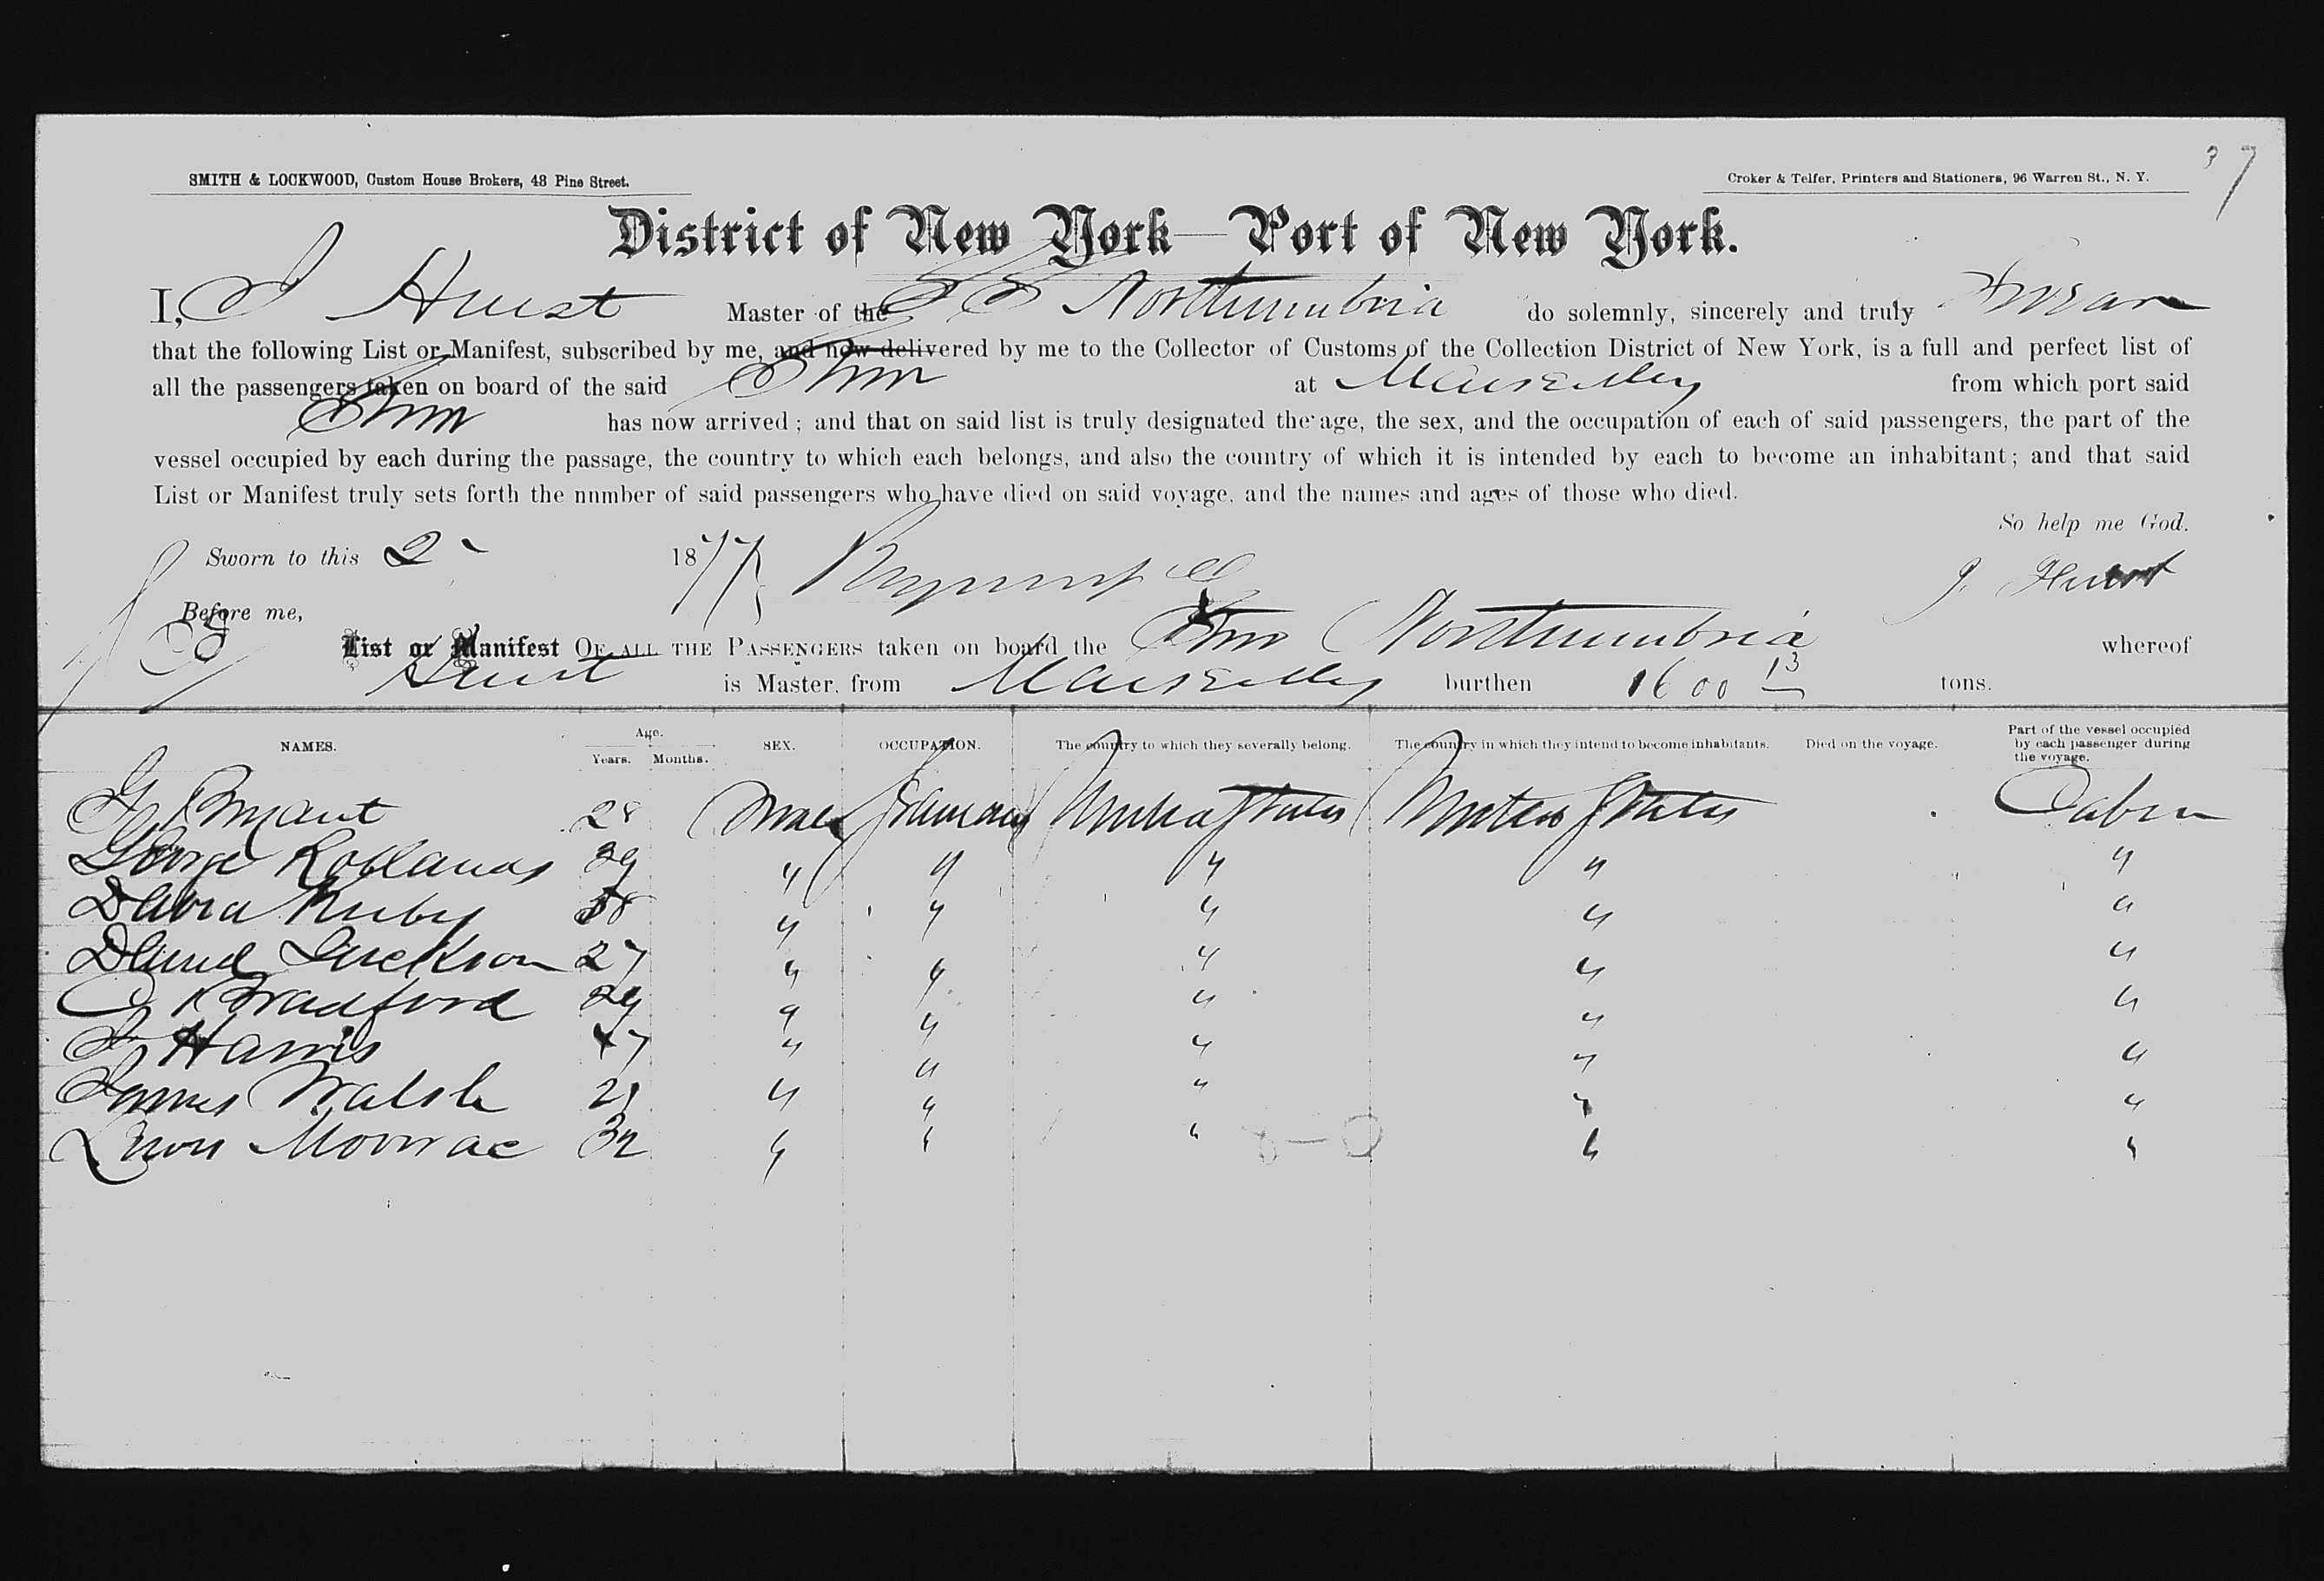 37
SMITH & LOCKWOOD, Custom House Brokers, 43 Pine Street.
Croker & Telfer, Printers and Stationers, 96 Warren St., N. Y.
District of New York—Port of New York.
I, J Hurst Master of the SS Northumbria do solemnly, sincerely and truly Swear
that the following List or Manifest, subscribed by me, and now delivered by me to the Collector of Customs of the Collection District of New York, is a full and perfect list of
all the passengers taken on board of the said Stmr at Marseilles from which port said
Stmr has now arrived; and that on said list is truly designated the age, the sex, and the occupation of each of said passengers, the part of the
vessel occupied by each during the passage, the country to which each belongs, and also the country of which it is intended by each to become an inhabitant; and that said
List or Manifest truly sets forth the number of said passengers who have died on said voyage, and the names and ages of those who died.
So help me God.
Sworn to this 2 1877 J. Hurst
Before me,
List or Manifest OF ALL THE PASSENGERS taken on board the Stmr Northumbria whereof
Hurst is Master, from Marseilles burthen 1600 13 tons.
NAMES. Age. Years. Months. SEX. OCCUPATION. The country to which they severally belong. The country in which they intend to become inhabitants. Died on the voyage. Part of the vessel occupied by each passenger during the voyage.
Bryant 28 Male Seaman United States United States Cabin
George 29 " " " " "
David Kirby " " " " "
Daniel Jackson 27 " " " " "
C Bradford 29 " " " " "
Harris 47 " " " " "
James Walsh 21 " " " " "
32 " " " " "